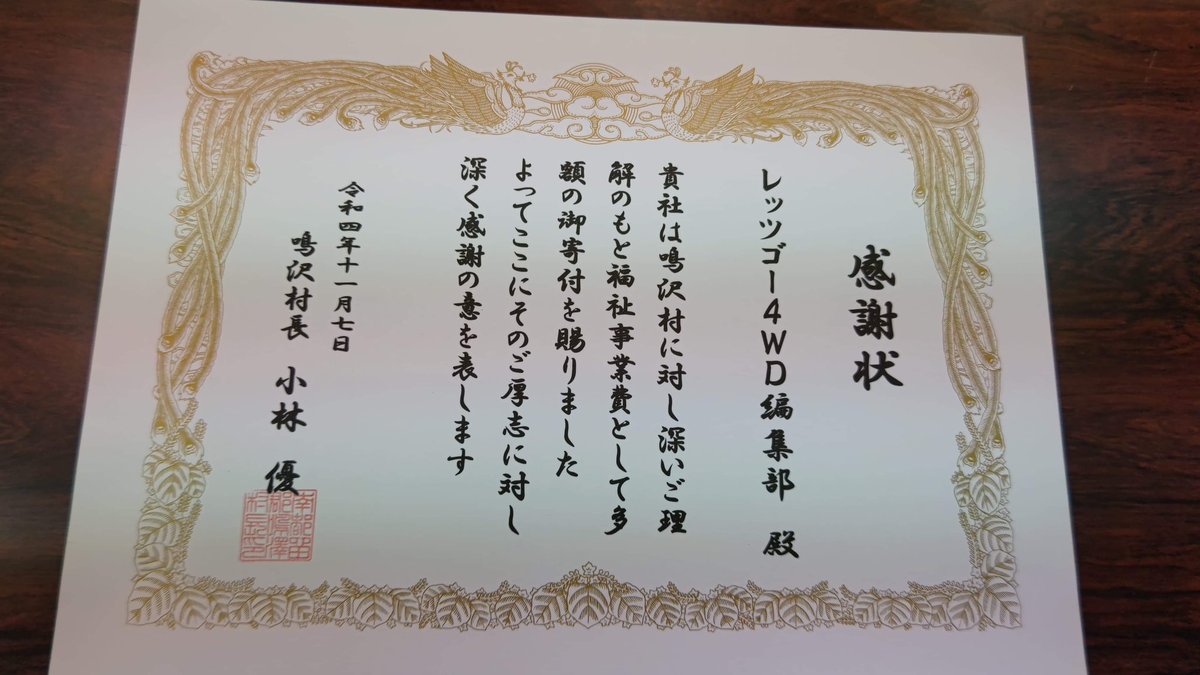 感謝状
レッツゴー4WD編集部 殿
貴社は鳴沢村に対し深いご理
解のもと福祉事業費として多
額の御寄付を賜りました
よってここにそのご厚志に対し
深く感謝の意を表します
令和四年十一月七日
鳴沢村長 小林 優